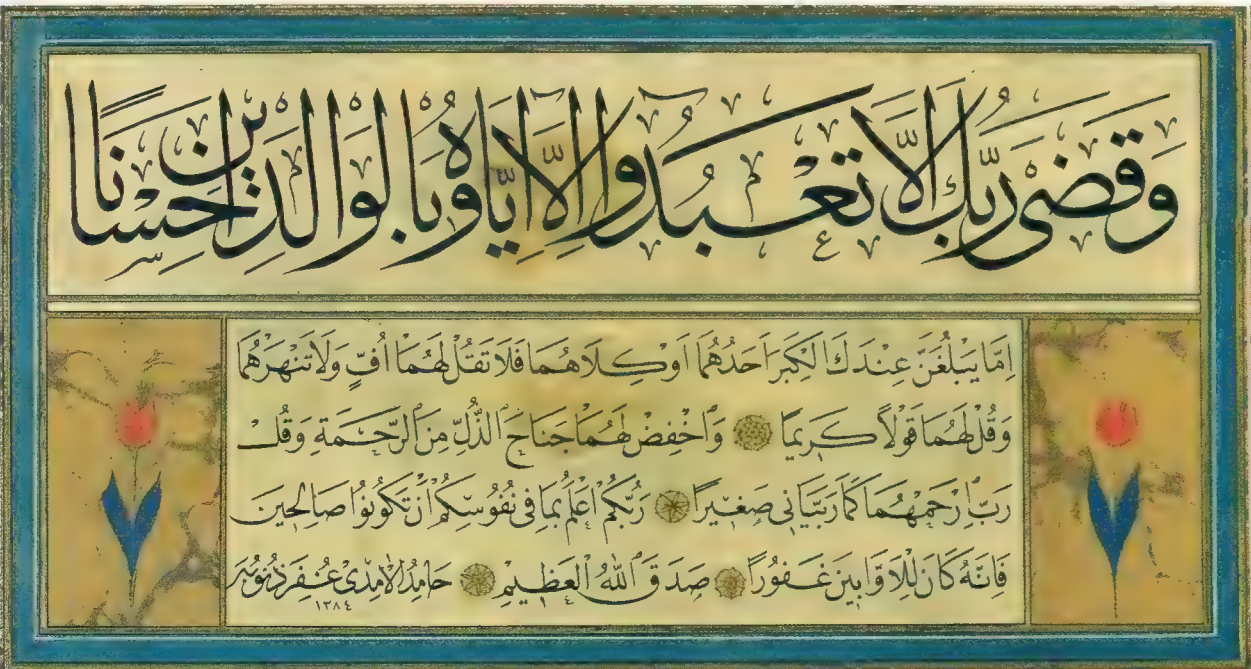 وَقَضٰى رَبُّكَ اَلَّا تَعْبُدُٓوا اِلَّٓا اِيَّاهُ وَبِالْوَالِدَيْنِ اِحْسَانًا
اِمَّا يَبْلُغَنَّ عِنْدَكَ الْكِبَرَ اَحَدُهُمَٓا اَوْ كِلَاهُمَا فَلَا تَقُلْ لَهُمَٓا اُفٍّ وَلَا تَنْهَرْهُمَا
وَقُلْ لَهُمَا قَوْلًا كَرِيمًا وَاخْفِضْ لَهُمَا جَنَاحَ الذُّلِّ مِنَ الرَّحْمَةِ وَقُلْ
رَبِّ ارْحَمْهُمَا كَمَا رَبَّيَانِي صَغِيرًا رَبُّكُمْ اَعْلَمُ بِمَا فِي نُفُوسِكُمْ اِنْ تَكُونُوا صَالِحِينَ
فَاِنَّهُ كَانَ لِلْاَوَّابِينَ غَفُورًا صَدَقَ اللهُ الْعَظِيمُ حَامِدُ الْاٰمِدِى غُفِرَ ذُنُوبُهُ
١٣٨٤